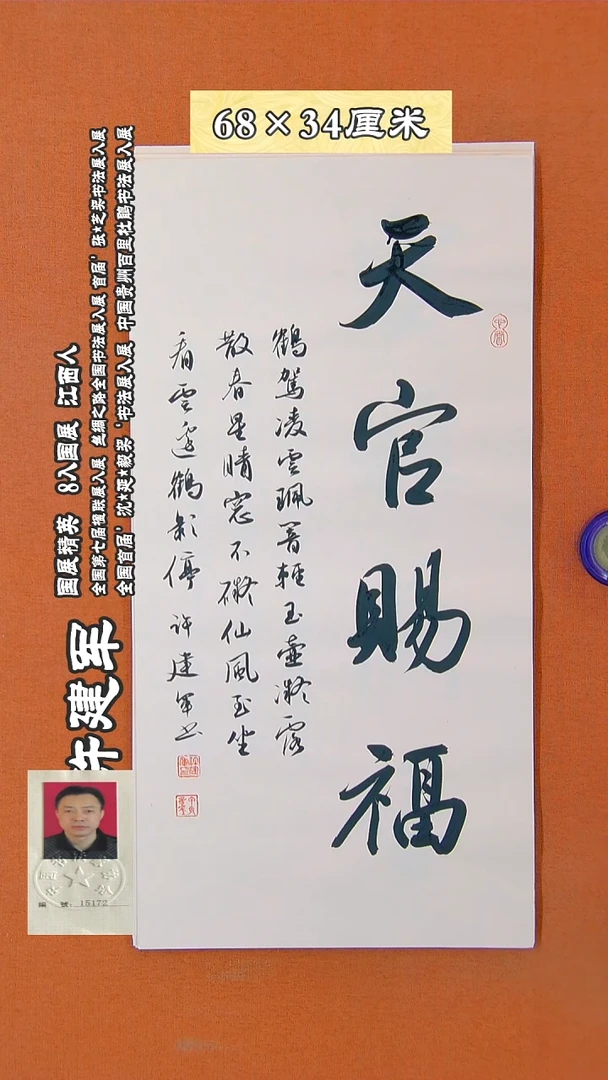 68×34厘米
天官赐福
鹤驾凌云珮箬轻玉壶凝露
散春星晴窗不碍仙风至坐
看云边鹤影停 许建军书
许建军
国展精英 8入国展 江西人
全国第七届楹联展入展 丝绸之路全国书法展入展 首届’张*芝奖书法展入展
全国首届’沈*延*毅奖‘书法展入展 中国贵州百里杜鹃书法展入展
编 号:15172